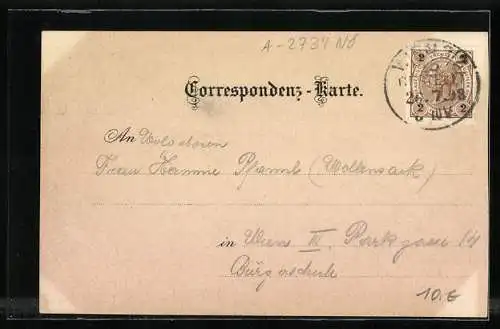 A-2734 NÖ
Correspondenz-Karte.
An Wolgeboren
Hermine Pfannl (Woltersack)
in Wien III. Parkgasse 14
Bürgerschule
10.€
2 2